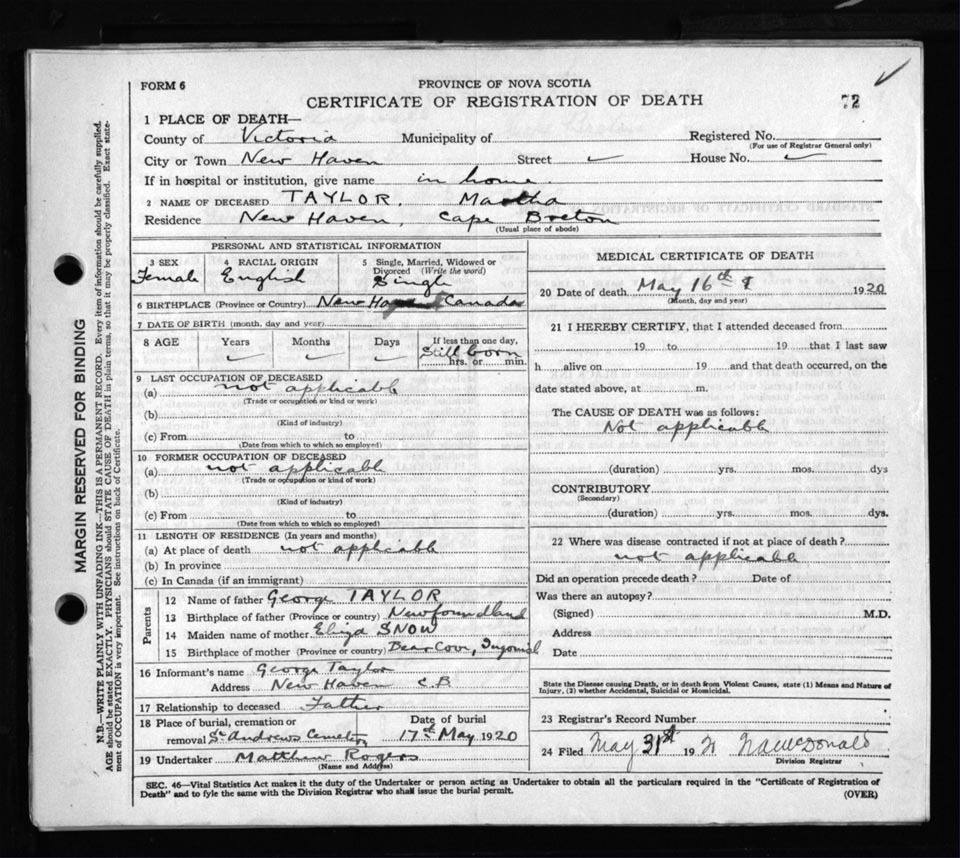 FORM 6
PROVINCE OF NOVA SCOTIA
CERTIFICATE OF REGISTRATION OF DEATH
72
1 PLACE OF DEATH—
County of Victoria Municipality of Registered No.
(For use of Registrar General only)
City or Town New Haven Street House No.
If in hospital or institution, give name in home.
2 NAME OF DECEASED TAYLOR, Martha
Residence New Haven, Cape Breton
(Usual place of abode)
PERSONAL AND STATISTICAL INFORMATION
3 SEX 4 RACIAL ORIGIN 5 Single, Married, Widowed or Divorced (Write the word)
Female English Single
6 BIRTHPLACE (Province or Country) New Haven Canada
7 DATE OF BIRTH (month, day and year)
8 AGE Years Months Days If less than one day,
Still born
hrs. or min.
9 LAST OCCUPATION OF DECEASED
(a) not applicable
(Trade or occupation or kind or work)
(b)
(Kind of industry)
(c) From to
(Date from which to which so employed)
10 FORMER OCCUPATION OF DECEASED
(a) not applicable
(Trade or occupation or kind of work)
(b)
(Kind of industry)
(c) From to
(Date from which to which so employed)
11 LENGTH OF RESIDENCE (In years and months)
(a) At place of death not applicable
(b) In province
(c) In Canada (if an immigrant)
Parents
12 Name of father George TAYLOR
13 Birthplace of father (Province or country) Newfoundland
14 Maiden name of mother Eliza SNOW
15 Birthplace of mother (Province or country) Dear Cove,
16 Informant's name George Taylor
Address New Haven C.B.
17 Relationship to deceased Father
18 Place of burial, cremation or removal St Andrews Cemetery
Date of burial
17th May 1920
19 Undertaker Matthew Rogers
(Name and Address)
MEDICAL CERTIFICATE OF DEATH
20 Date of death May 16th 1920
(Month, day and year)
21 I HEREBY CERTIFY, that I attended deceased from
19 to 19 that I last saw
h alive on 19 and that death occurred, on the
date stated above, at m.
The CAUSE OF DEATH was as follows:
Not applicable
(duration) yrs. mos. dys
CONTRIBUTORY
(Secondary)
(duration) yrs. mos. dys.
22 Where was disease contracted if not at place of death?
not applicable
Did an operation precede death? Date of
Was there an autopsy?
(Signed) M.D.
Address
Date
State the Disease causing Death, or in death from Violent Causes, state (1) Means and Nature of
Injury, (2) whether Accidental, Suicidal or Homicidal.
23 Registrar's Record Number
24 Filed May 31st 1921
Division Registrar
SEC. 46—Vital Statistics Act makes it the duty of the Undertaker or person acting as Undertaker to obtain all the particulars required in the "Certificate of Registration of
Death" and to fyle the same with the Division Registrar who shall issue the burial permit.
(OVER)
MARGIN RESERVED FOR BINDING
N.B.—WRITE PLAINLY WITH UNFADING INK—THIS IS A PERMANENT RECORD. Every item of information should be carefully supplied.
AGE should be stated EXACTLY. PHYSICIANS should STATE CAUSE OF DEATH in plain terms, so that it may be properly classified. Exact state-
ment of OCCUPATION is very important. See instructions on back of Certificate.